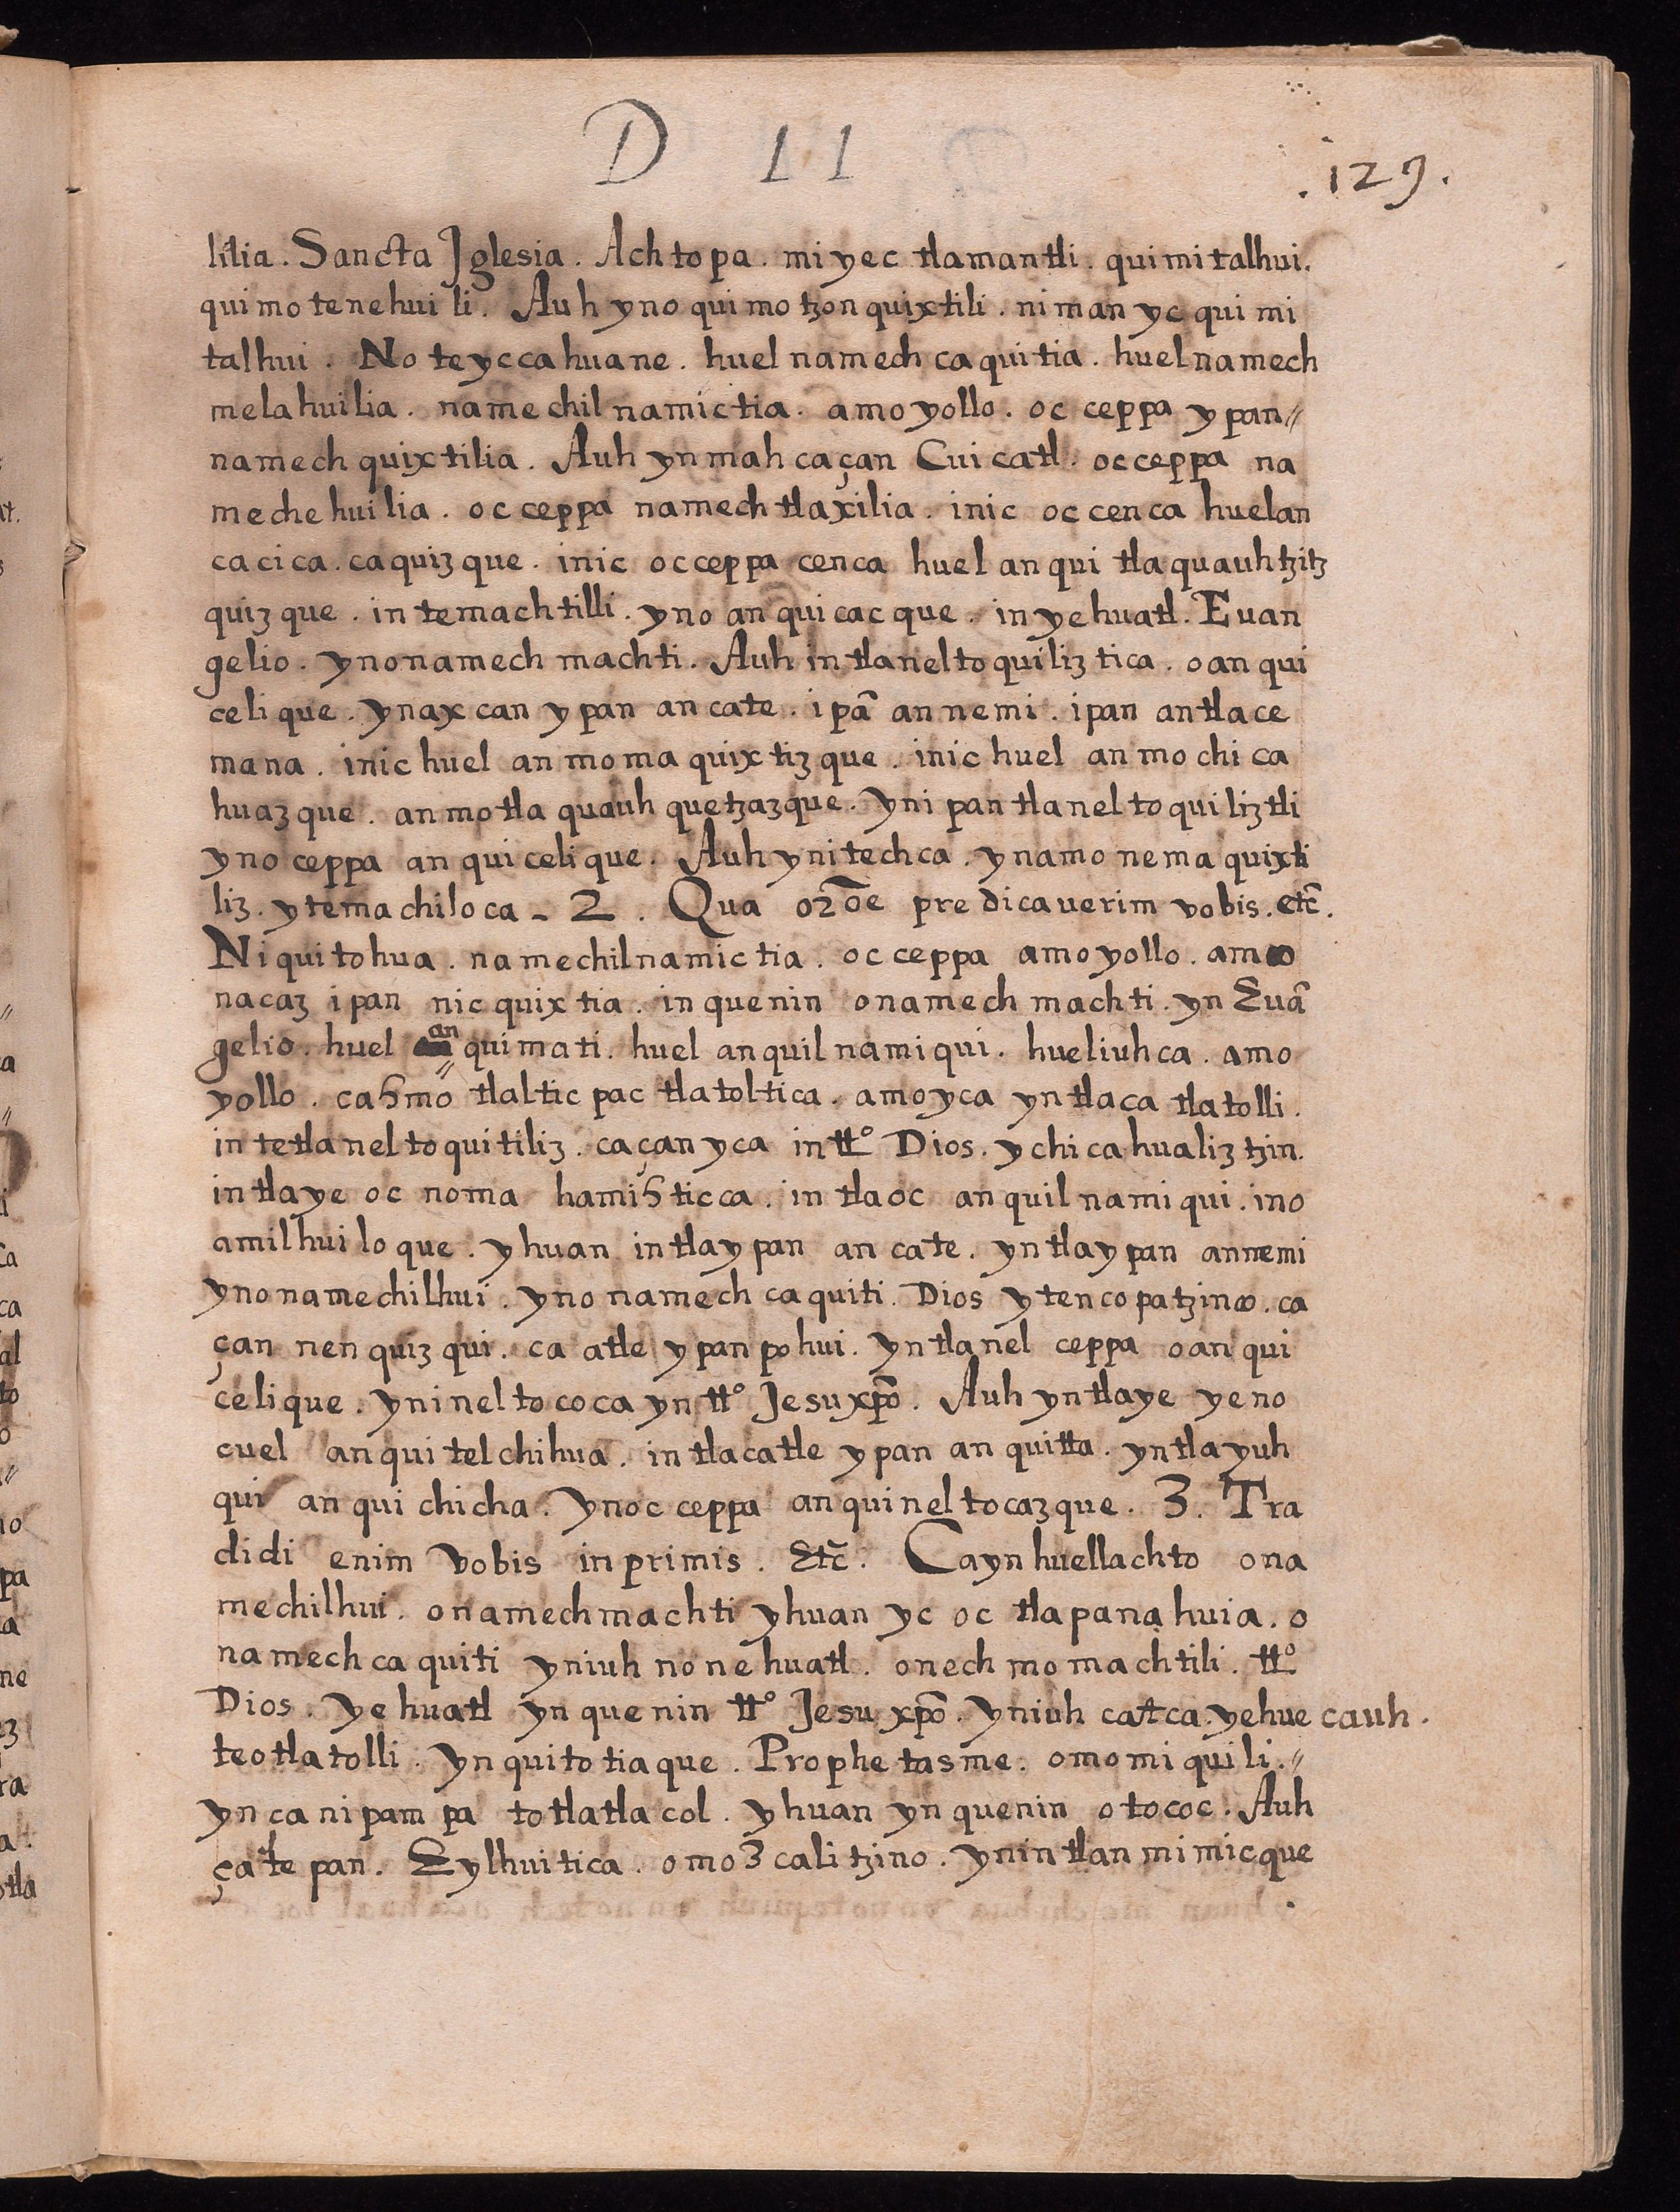 D 11
.129.
litia. Sancta Jglesia. Achtopa. miyec tlamantli. quimitalhui.
quimotenehuili. Auh yno quimotzonquixtili. niman yc quimi
talhui. No teyccahuane. huel namech caquitia. huel namech
melahuilia. namechilnamictia. amoyollo. oc ceppa ypan〃
namech quixtilia. Auh yn mah caçan Cuicatl. occeppa na
mechehuilia. occeppa namech tlaxilia. inic occenca huelan
cacica. caquizque. inic occeppa cenca huel anqui tlaquauhtzitz
quizque. in temachtilli. yno anquicacque. in yehuatl. Euan
gelio. ynonamech machti. Auh in tlaneltoquiliztica. oanqui
celique. ynaxcan ypan ancate. ipā annemi. ipan antlace
mana. inic huel anmomaquixtizque. inic huel anmochica
huazque. anmotlaquauhquetzazque. yni pan tlaneltoquiliztli
ynoceppa anquicelique. Auh ynitechca. ynamonemaquixti
liz. ytemachiloca - 2. Qua orōe predicauerim vobis. etc̃.
Niquitohua. namechilnamictia. occeppa amoyollo. amo
nacaz ipan nicquixtia. in quenin onamech machti. yn Euā
gelio. huel an quimati. huel anquilnamiqui. hueliuhca. amo
yollo. cahmo tlalticpac tlatoltica. amoyca yn tlaca tlatolli.
in tetlaneltoquitiliz. caçan yca in tt.º Dios. ychicahualiztzin.
intlaye oc noma hamihticca. intlaoc anquilnamiqui. ino
amilhuiloque. yhuan intlaypan ancate. yntlaypan annemi
ynonamechilhui. ynonamech caquiti. Dios ytencopatzinco. ca
çan nenquizqui. ca atle ypan pohui. yntlanel ceppa oanqui
celique. yni neltococa yn tt.º Jesu xp̄o. Auh yntlaye yeno
cuel anquitelchihua. intlacatle ypan anquitta. yntlayuh
qui anquichicha. ynoc ceppa anquineltocazque. 3. Tra
didi enim vobis inprimis. Etc̃. Cayn huellachto ona
mechilhui. onamechmachti yhuan yc oc tlapanahuia. o
namech caquiti yniuh no nehuatl. onechmomachtili. tt.º
Dios. yehuatl yn quenin tt.º Jesu xp̄o. yniuh catca. yehue cauh.
teotlatolli. yn quitotiaque. Prophetasme. omomiquili.〃
yn ca nipampa totlatlacol. yhuan yn quenin otococ. Auh
çatepan. Eylhuitica. omo3calitzino. ynintlan mimicque